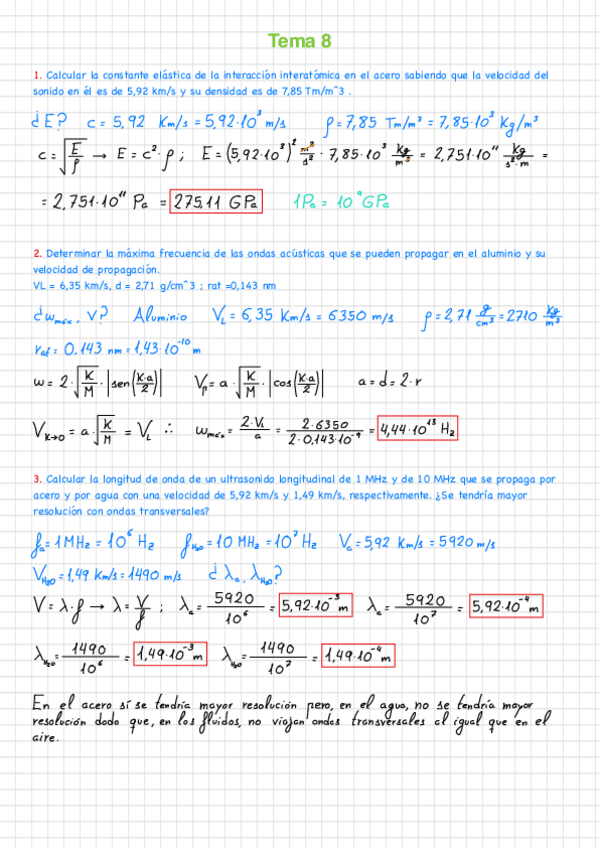 Tema 8
1. Calcular la constante elástica de la interacción interatómica en el acero sabiendo que la velocidad del
sonido en él es de 5,92 km/s y su densidad es de 7,85 Tm/m^3 .
¿E? c = 5,92 Km/s = 5,92·10³ m/s ρ = 7,85 Tm/m³ = 7,85·10³ Kg/m³
c = √(E/ρ) → E = c²·ρ ; E = (5,92·10³)² m²/s² · 7,85·10³ Kg/m³ = 2,751·10¹¹ Kg/s²·m =
= 2,751·10¹¹ Pa = 275,11 GPa 1Pa = 10⁹ GPa
2. Determinar la máxima frecuencia de las ondas acústicas que se pueden propagar en el aluminio y su
velocidad de propagación.
VL = 6,35 km/s, d = 2,71 g/cm^3 ; rat =0,143 nm
¿ω máx, v? Aluminio V_L = 6,35 Km/s = 6350 m/s ρ = 2,71 g/cm³ = 2710 Kg/m³
r_at = 0,143 nm = 1,43·10⁻¹⁰ m
ω = 2·√(K/M)·|sen(K·a/2)| V_p = a·√(K/M)·|cos(K·a/2)| a = d = 2·r
V_K→0 = a·√(K/M) = V_L ∴ ω máx = 2·V_L/a = 2·6350/2·0,143·10⁻⁹ = 4,44·10¹³ Hz
3. Calcular la longitud de onda de un ultrasonido longitudinal de 1 MHz y de 10 MHz que se propaga por
acero y por agua con una velocidad de 5,92 km/s y 1,49 km/s, respectivamente. ¿Se tendría mayor
resolución con ondas transversales?
f_a = 1 MHz = 10⁶ Hz f_H₂O = 10 MHz = 10⁷ Hz V_a = 5,92 Km/s = 5920 m/s
V_H₂O = 1,49 Km/s = 1490 m/s ¿λ_a, λ_H₂O?
V = λ·f → λ = V/f ; λ_a = 5920/10⁶ = 5,92·10⁻³ m λ_a = 5920/10⁷ = 5,92·10⁻⁴ m
λ_H₂O = 1490/10⁶ = 1,49·10⁻³ m λ_H₂O = 1490/10⁷ = 1,49·10⁻⁴ m
En el acero sí se tendría mayor resolución pero, en el agua, no se tendría mayor
resolución dado que, en los fluidos, no viajan ondas transversales al igual que en el
aire.